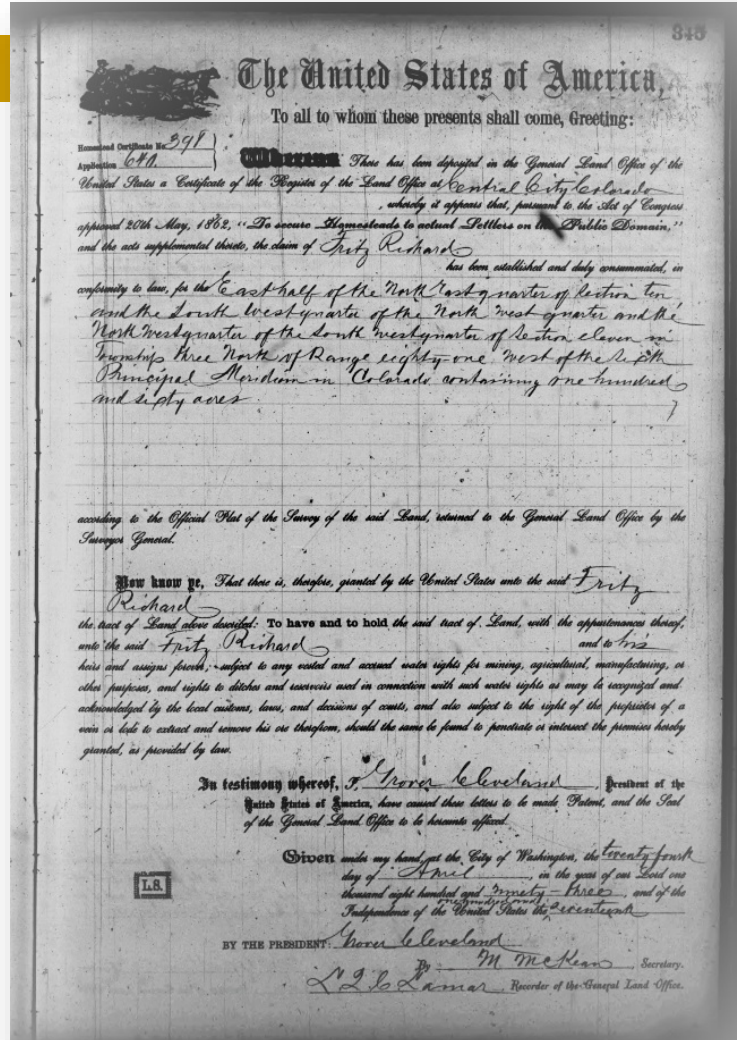 345
The United States of America,
To all to whom these presents shall come, Greeting:
Homestead Certificate No. 391
Application 640.
Whereas There has been deposited in the General Land Office of the
United States a Certificate of the Register of the Land Office at Central City Colorado
, whereby it appears that, pursuant to the Act of Congress
approved 20th May, 1862, "To secure Homesteads to actual Settlers on the Public Domain,"
and the acts supplemental thereto, the claim of Fritz Richard
has been established and duly consummated, in
conformity to law, for the East half of the North East quarter of Section ten
and the South West quarter of the North west quarter and the
North West quarter of the South west quarter of Section eleven in
Township three North of Range eighty-one West of the Sixth
Principal Meridian in Colorado containing one hundred
and sixty acres
according to the Official Plat of the Survey of the said Land, returned to the General Land Office by the
Surveyor General.
Now know ye, That there is, therefore, granted by the United States unto the said Fritz
Richard
the tract of Land above described: To have and to hold the said tract of Land, with the appurtenances thereof,
unto the said Fritz Richard and to his
heirs and assigns forever; subject to any vested and accrued water rights for mining, agricultural, manufacturing, or
other purposes, and rights to ditches and reservoirs used in connection with such water rights as may be recognized and
acknowledged by the local customs, laws, and decisions of courts, and also subject to the right of the proprietor of a
vein or lode to extract and remove his ore therefrom, should the same be found to penetrate or intersect the premises hereby
granted, as provided by law.
In testimony whereof, I, Grover Cleveland, President of the
United States of America, have caused these letters to be made Patent, and the Seal
of the General Land Office to be hereunto affixed.
Given under my hand, at the City of Washington, the twenty fourth
day of April, in the year of our Lord one
thousand eight hundred and ninety-three, and of the
Independence of the United States the one hundred and seventeenth
L.S.
BY THE PRESIDENT: Grover Cleveland
By M McKean, Secretary.
L Q C Lamar, Recorder of the General Land Office.